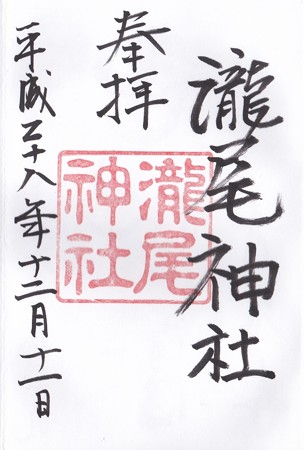 瀧尾神社
奉拝
瀧尾
神社
平成二十八年十二月十一日